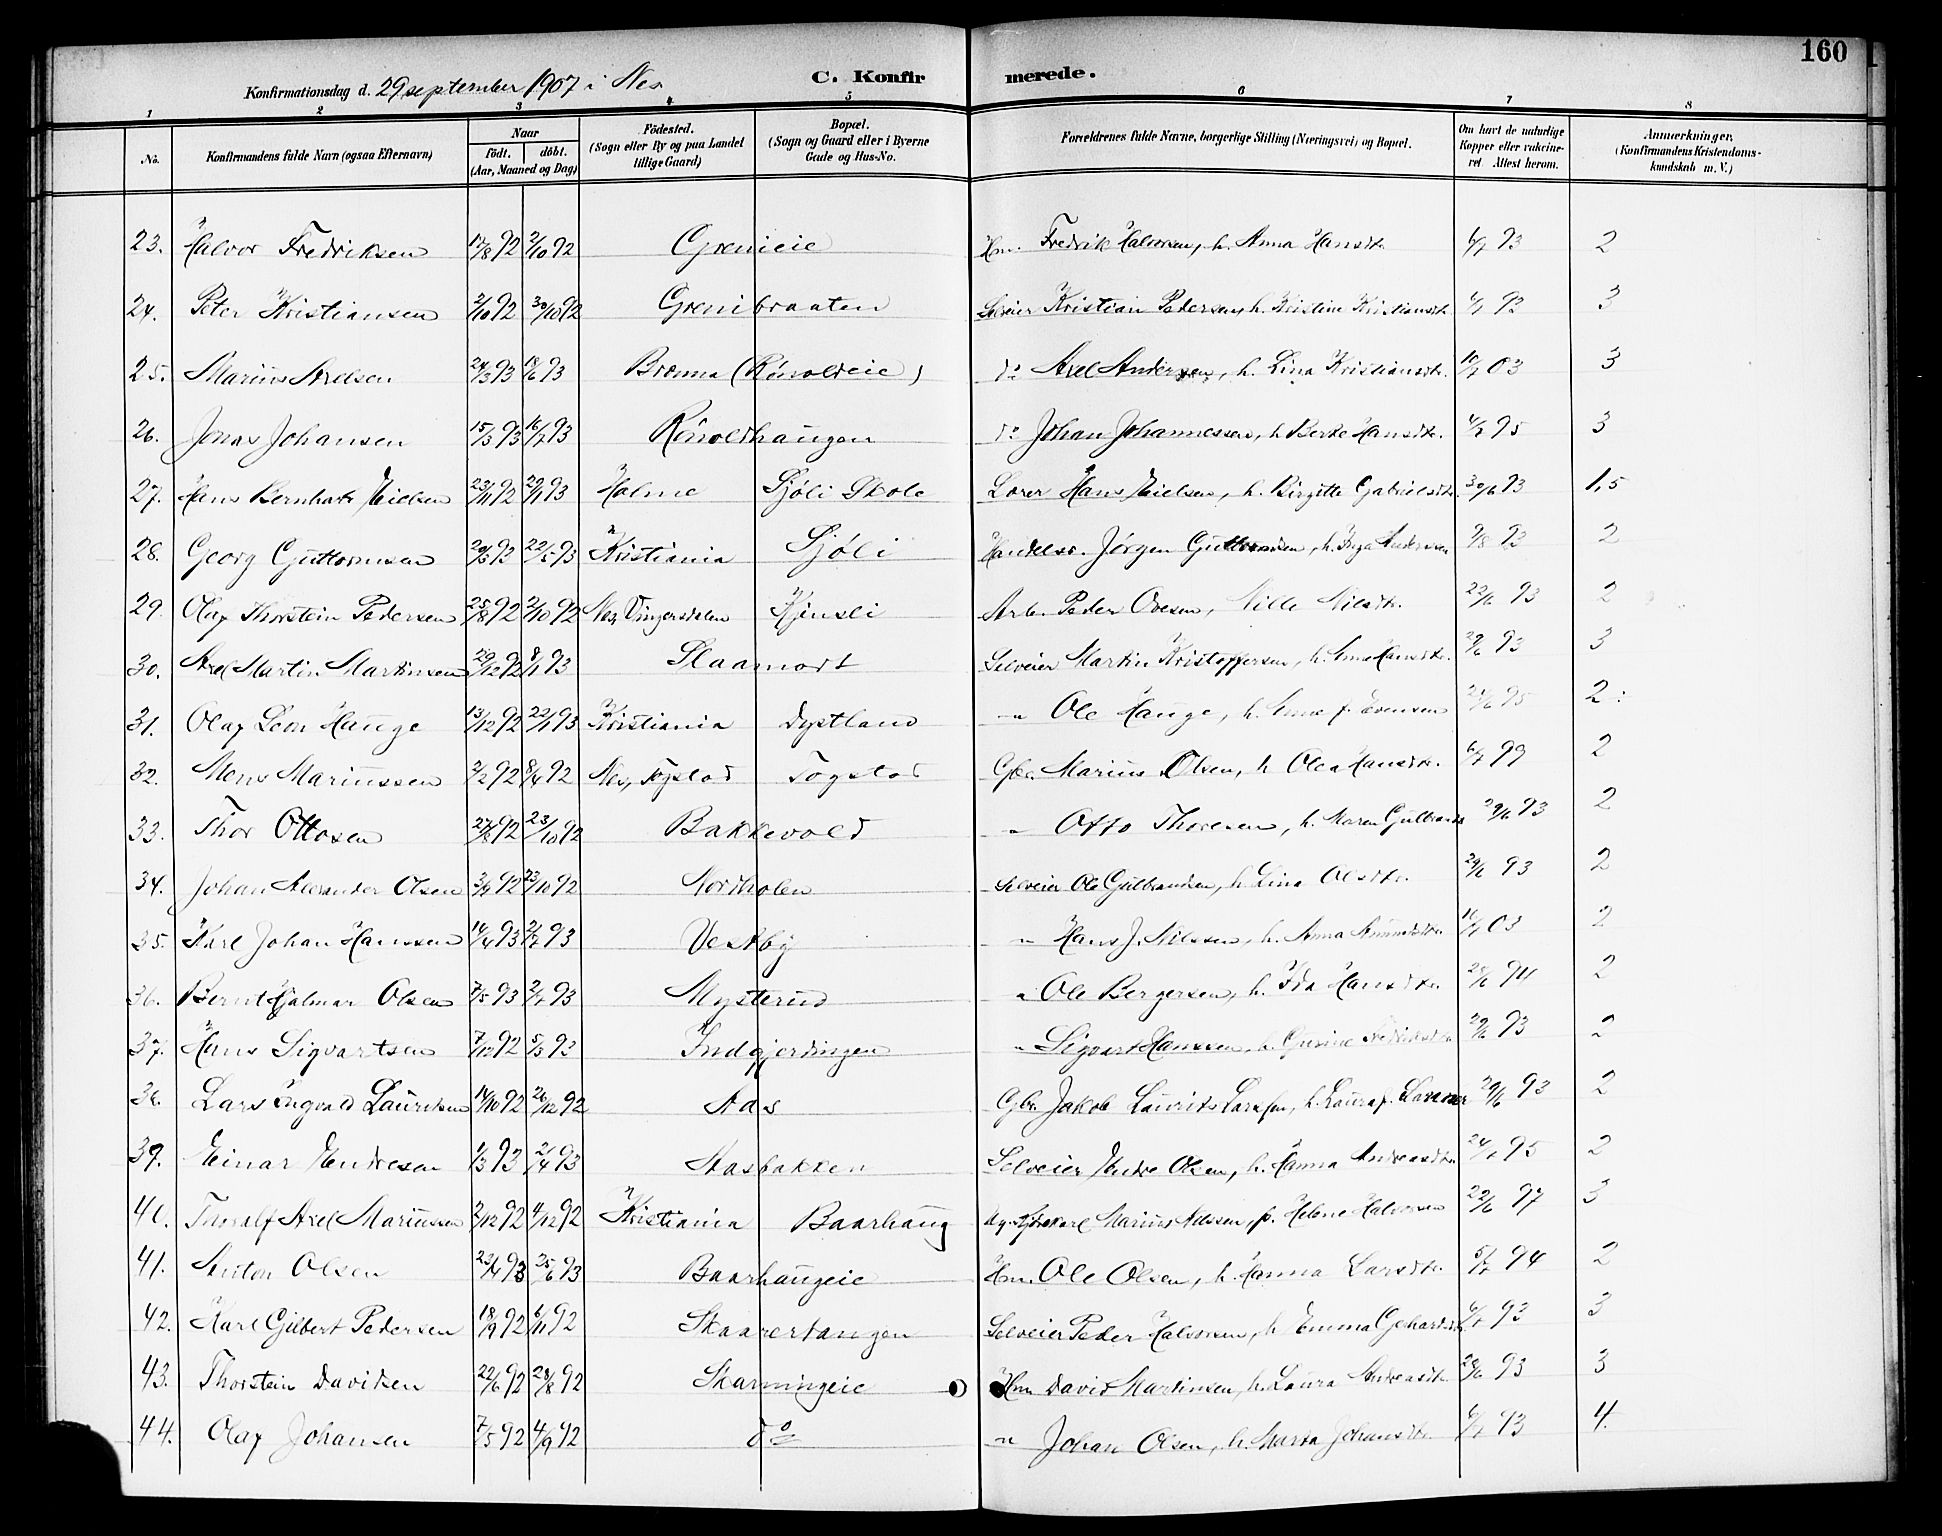 160
Konfirmationsdag d. 29 september 1907 i Nes
C. Konfirmerede.
1 2 3 4 5 6 7 8
No. Konfirmandens fulde Navn (ogsaa Efternavn) Naar født. døbt. (Aar, Maaned og Dag) Födested. (Sogn eller By og paa Landet tillige Gaard) Bopæl. (Sogn og Gaard eller i Byerne Gade og Hus-No. Forældrenes fulde Navne, borgerlige Stilling (Næringsvei) og Bopæl. Om havt de naturlige Kopper eller vakcineret. Attest herom. Anmærkninger. (Konfirmandens Kristendomskundskab m. V.)
23. Halvor Fredriksen 17/8 92 2/10 92 Grenieie Hm. Fredrik Halvorsen, h. Anna Hansdtr. 6/7 93 2
24. Peter Kristiansen 2/10 92 30/10 92 Grenibraaten Selveier Kristian Pedersen, h. Kristine Kristiansdtr. 6/7 93 3
25. Marius Axelsen 24/3 93 18/6 93 Brænna (Rönoldeie) do Axel Andersen, h. Lina Kristiansdtr. 10/7 03 3
26. Jonas Johansen 15/3 93 16/7 93 Rönoldhaugen do Johan Johannessen, h. Berte Hansdtr. 4/7 95 3
27. Hans Bernhard Eielsen 23/11 92 29/1 93 Holme Sjöli Skole Lærer Hans Eielsen, h. Birgitte Gabrielsdtr. 30/6 93 1,5
28. Georg Guttormsen 20/3 93 22/5 93 Kristiania Sjöli Handelsr. Jörgen h. Inga Andersen 9/8 93 2
29. Olaf Thorstein Pedersen 25/8 92 2/10 92 Nes, Dingersdalen Kjinsli Arb. Peder Ovesen, Nille Nilsdtr. 22/6 93 2
30. Axel Martin Martinsen 29/12 92 8/1 93 Slaamodt Selveier Martin Kristoffersen, h. Anne Hansdtr. 29/6 93 3
31. Olaf Leon Hauge 13/12 92 22/1 93 Kristiania Dystland " Ole Hauge, h. Anne f. Evensen 95 2
32. Mens Mariussen 3/2 92 8/4 92 Nes, Togstad Togstad Gbr. Marius Olsen, h. Olea Hansdtr. 6/7 99 2
33. Thor Ottosen 27/8 92 23/10 92 Bakkevold " Otto Thoresen, h. Maren Gulbrands 29/6 93 2
34. Johan Alexander Olsen 3/9 92 23/10 92 Nordholen Selveier Ole Gulbrandsen, h. Lina Olsdtr. 29/6 93 2
35. Karl Johan Hanssen 14/4 93 2/7 93 Vestby " Hans J. Nilssen, h. Anna 10/7 03 2
36. Bernt Hjalmar Olsen 7/5 93 2/7 93 Mysterud " Ole Bergersen, h. Ida Hansdtr. 28/6 94 2
37. Hans Sigvartsen 7/12 92 5/3 93 Indgjerdingen " Sigvart Hanssen, h. Gusine Fredriksdtr. 29/6 93 2
38. Lars Ingvald Lauritsen 14/10 92 26/12 92 Aas Gbr. Jakob Laurits Larssen, h. Laura f. 29/6 93 2
39. Einar Endresen 1/3 93 2/4 93 Aasbakken Selveier Endre Olsen, h. Hanna Andreasdtr. 24/6 95 2
40. Thoralf Axel Mariussen 2/12 92 4/12 92 Kristiania Baarhaug Ug. Marius Nilssen, p. Helene Halvorsen 22/6 97 3
41. Anton Olsen 23/4 93 25/6 93 Baarhaugeie Hm. Ole Olsen, h. Hanna Larsdtr. 5/7 94 2
42. Karl Gilbert Pedersen 18/9 92 6/11 92 Skaarertangen Selveier Peder Halvorsen, h. Emma 6/7 93 3
43. Thorstein Davidsen 22/6 92 28/8 92 Skarningeie Hm. David Martinsen, h. Laura Andreasdtr. 28/6 93 3
44. Olaf Johansen 7/5 92 4/9 92 do " Johan Olsen, h. Marta Johansdtr. 6/7 93 4.